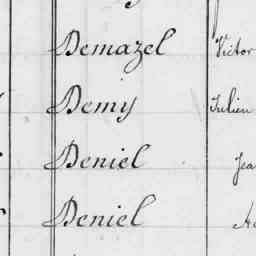 Demazel Victor
Demy Julien
Deniel
Deniel